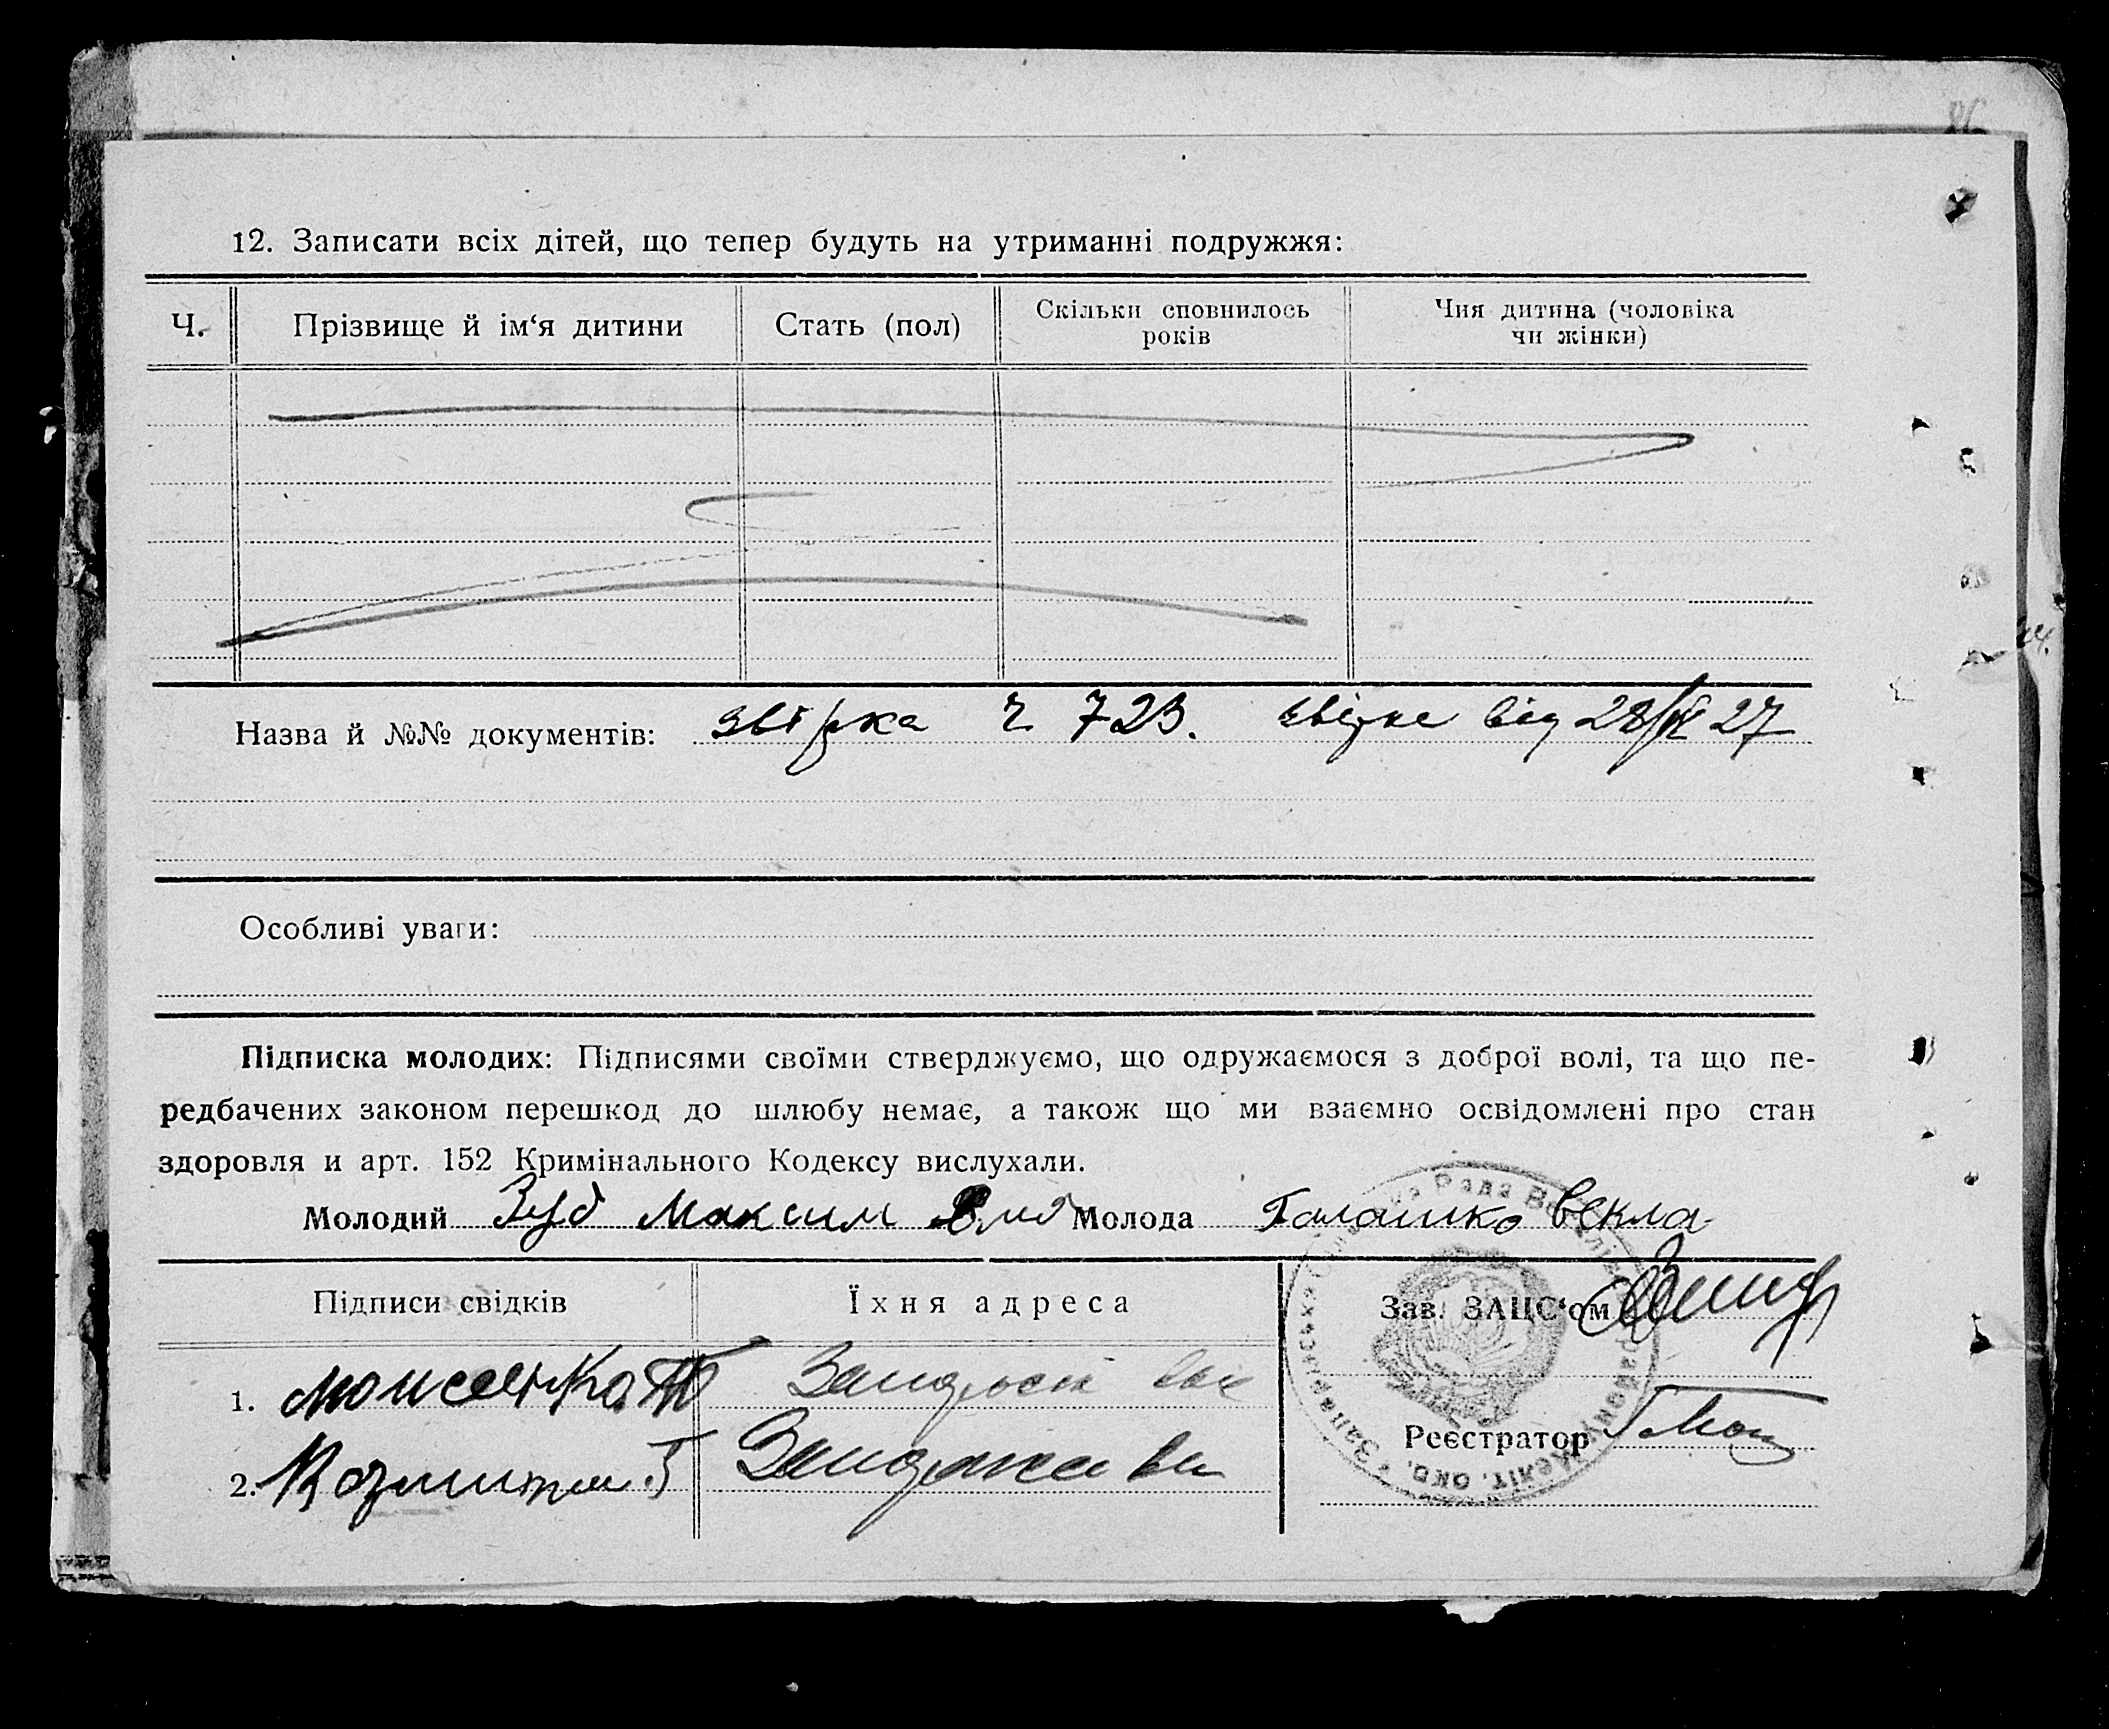 12. Записати всіх дітей, що тепер будуть на утриманні подружжя:
Ч. Прізвище й ім‘я дитини Стать (пол) Скільки сповнилось років Чия дитина (чоловіка чи жінки)
Назва й №№ документів: звірка ч 723. від 28/IX 27
Особливі уваги:
Підписка молодих: Підписями своїми стверджуємо, що одружаємося з доброї волі, та що пе-
редбачених законом перешкод до шлюбу немає, а також що ми взаємно освідомлені про стан
здоровля и арт. 152 Кримінального Кодексу вислухали.
Молодий Зуб Максим Молода Галашко Векла
Підписи свідків Їхня адреса Зав. ЗАЦС‘ом
1. Моисеенко
Реєстратор
2.